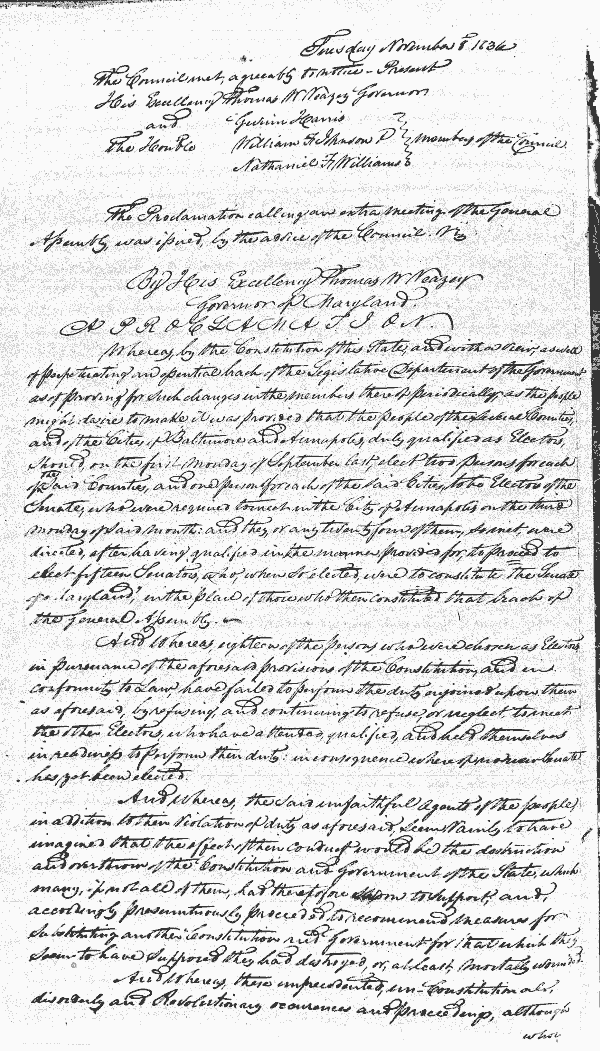 Tuesday November 8 1836
The Council met, agreeably to notice - Present
His Excellency Thomas W Veazey Governor
and Gwinn Harris
The Honble William H Johnson members of the Council
Nathaniel F Williams
The Proclamation calling an extra meeting of the General
Assembly, was issued, by the advice of the Council. Viz
By His Excellency Thomas W Veazey
Governor of Maryland.
A PROCLAMATION.
Whereas, by the Constitution of this State, and with a view, as well
of perpetuating an essential branch of the Legislative Department of the Government
as of providing for such changes in the members thereof periodically, as the people
might desire to make it was provided that the people of the several Counties,
and of the Cities, of Baltimore and Annapolis, duly qualified as Electors,
should, on the first Monday of September last, elect two persons for each
of the said Counties, and one person for each of the said Cities, to be Electors of the
Senate, who were required to meet in the City of Annapolis on the third
monday of said month: and they or any twenty four of them, so met, were
directed, after having qualified in the manner provided for, to proceed to
elect fifteen Senators, who, when so elected, were to constitute "the Senate
of Maryland", in the place of those who then constituted that branch of
the General Assembly.
And Whereas eighteen of the persons who were chosen as Electors
in pursuance of the aforesaid provisions of the Constitution, and in
conformity to law, have failed to perform the duty enjoined upon them
as aforesaid, by refusing, and continuing to refuse, or neglect, to meet
the other Electors, who have attended, qualified, and held themselves
in readiness to perform their duty: in consequence whereof no new Senate
has yet been elected.
And whereas, the said unfaithful Agents of the people,
in addition to their violation of duty as aforesaid, seem vainly to have
imagined that the effect of their conduct would be the destruction
and overthrow of the Constitution and Government of the State, which
many, if not all of them, had theretofore sworn to support, and,
accordingly presumptuously proceeded to recommend measures for
substituting another Constitution and Government for that which they
seem to have supposed they had destroyed or, at least, mortally wounded.
And Whereas, these unprecedented, un-Constitutional,
disorderly and Revolutionary occurences and proceedings, although
when